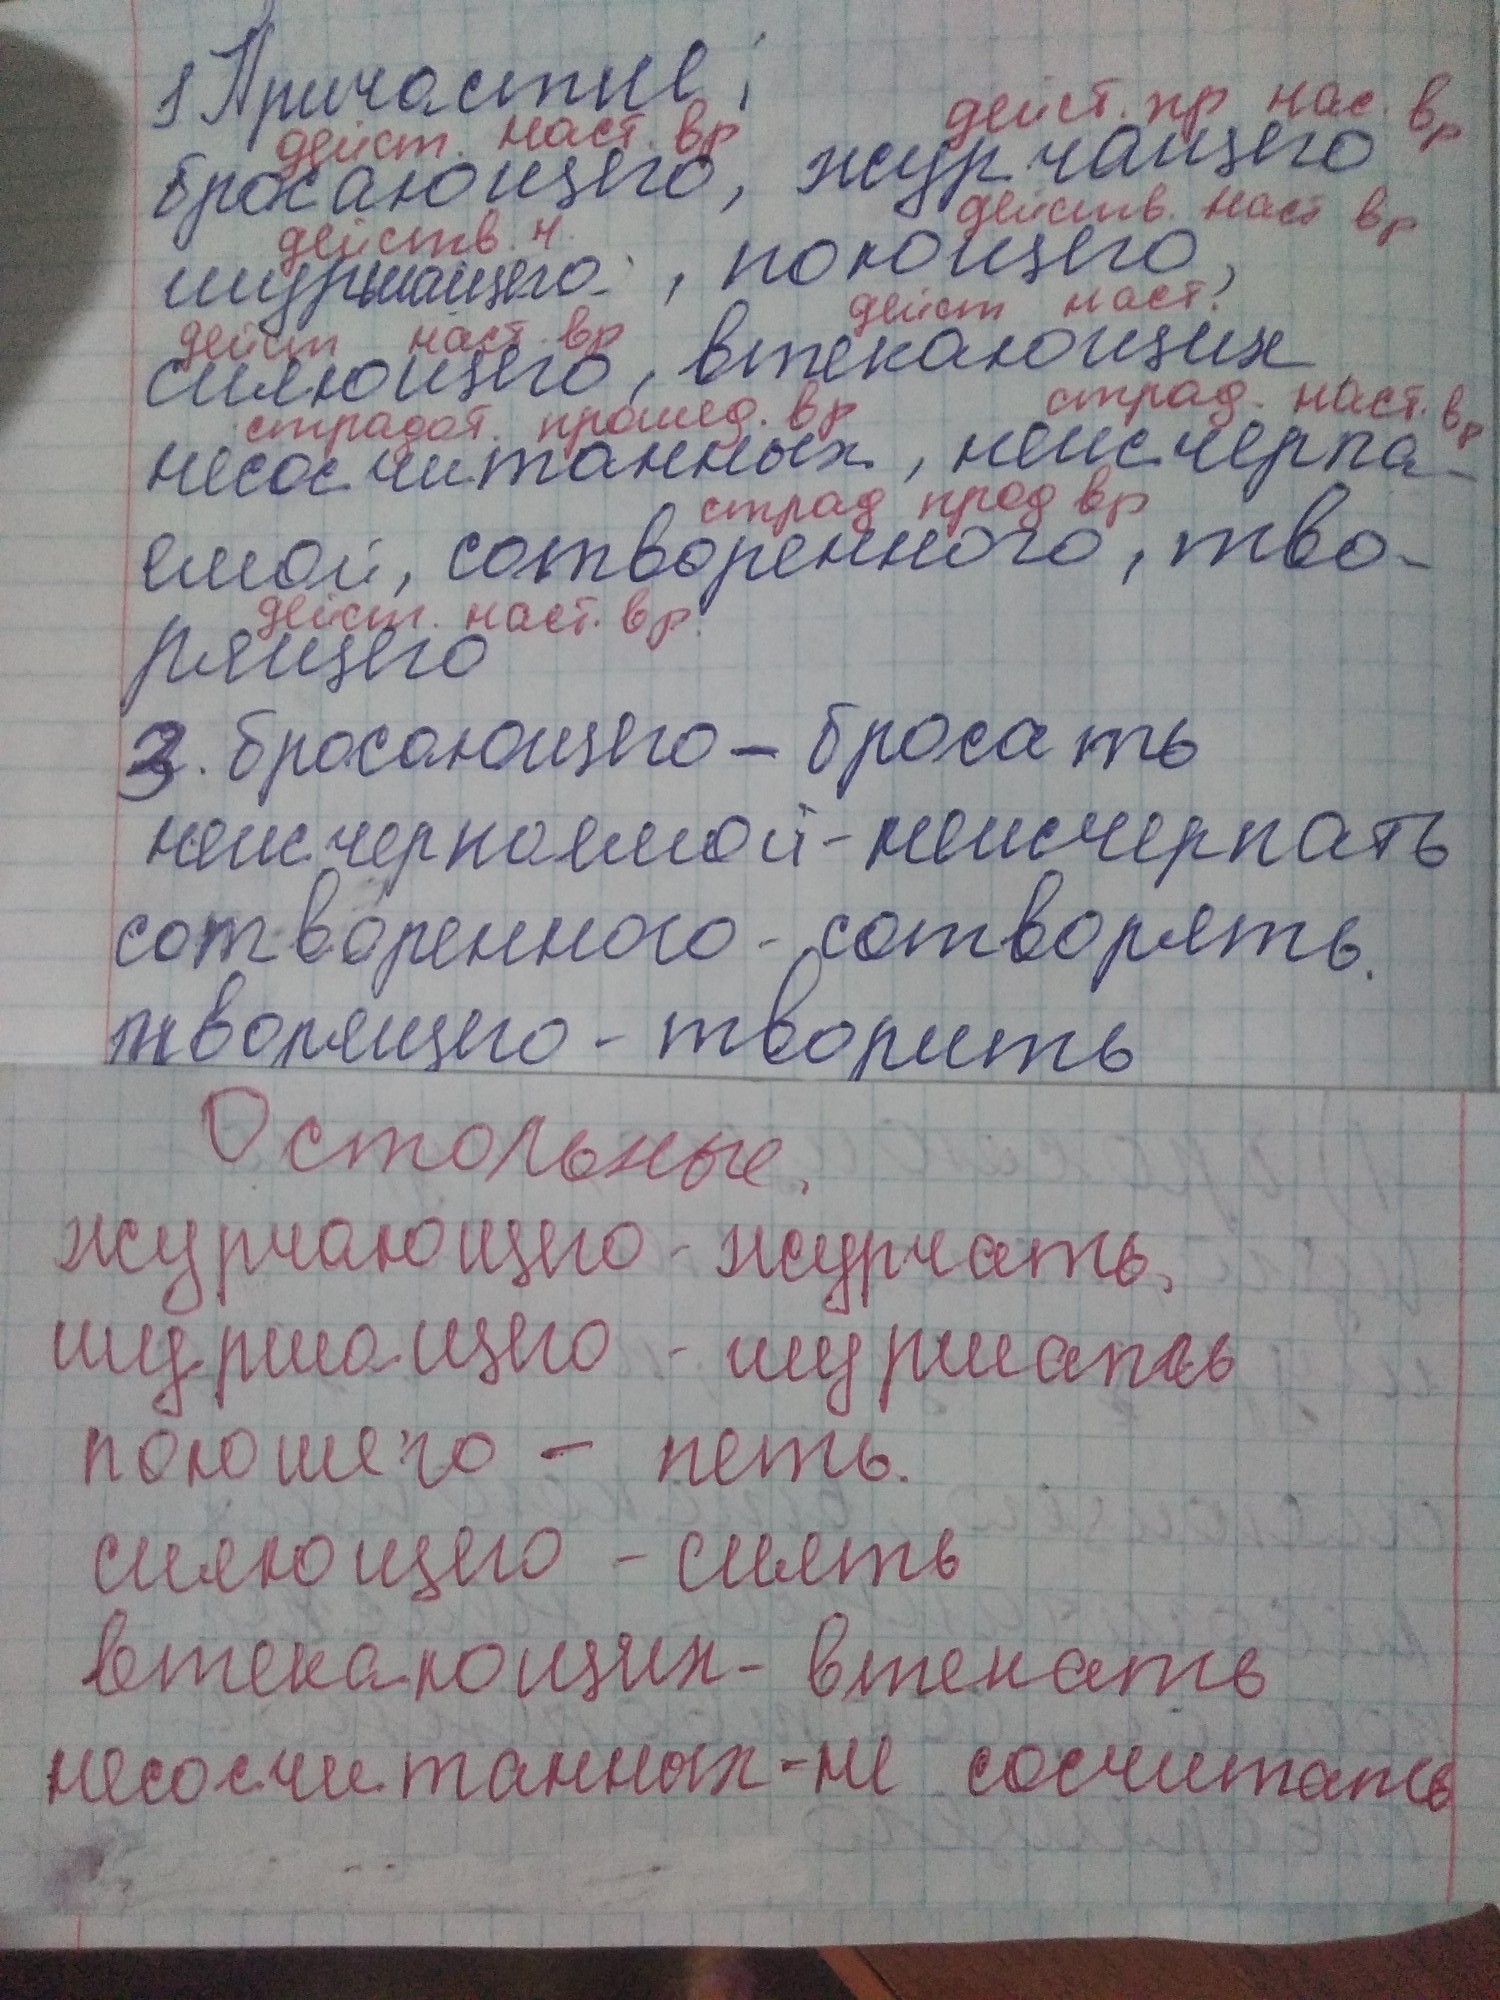 1 Причастие;
дейст. наст. вр дейст. пр нас. вр
бросающего, журчащего
действ. н. действ. наст вр
шуршащего, поющего,
дейст наст. вр дейст наст.
сияющего, втекающих,
страдат. прошед. вр страд. наст. вр
несосчитанных, неисчерпа-
страд прод вр
емой, сотворенного, тво-
дейст. наст. вр.
рящего
3. бросающего – бросать
неисчерпаемой – неисчерпать
сотворенного - сотворять.
творящего - творить
Остольные.
журчающего - журчать.
шуршащего - шуршать
поюшего - петь.
сияющего - сиять
втекающих - втекать
несосчитанных - не сосчитать